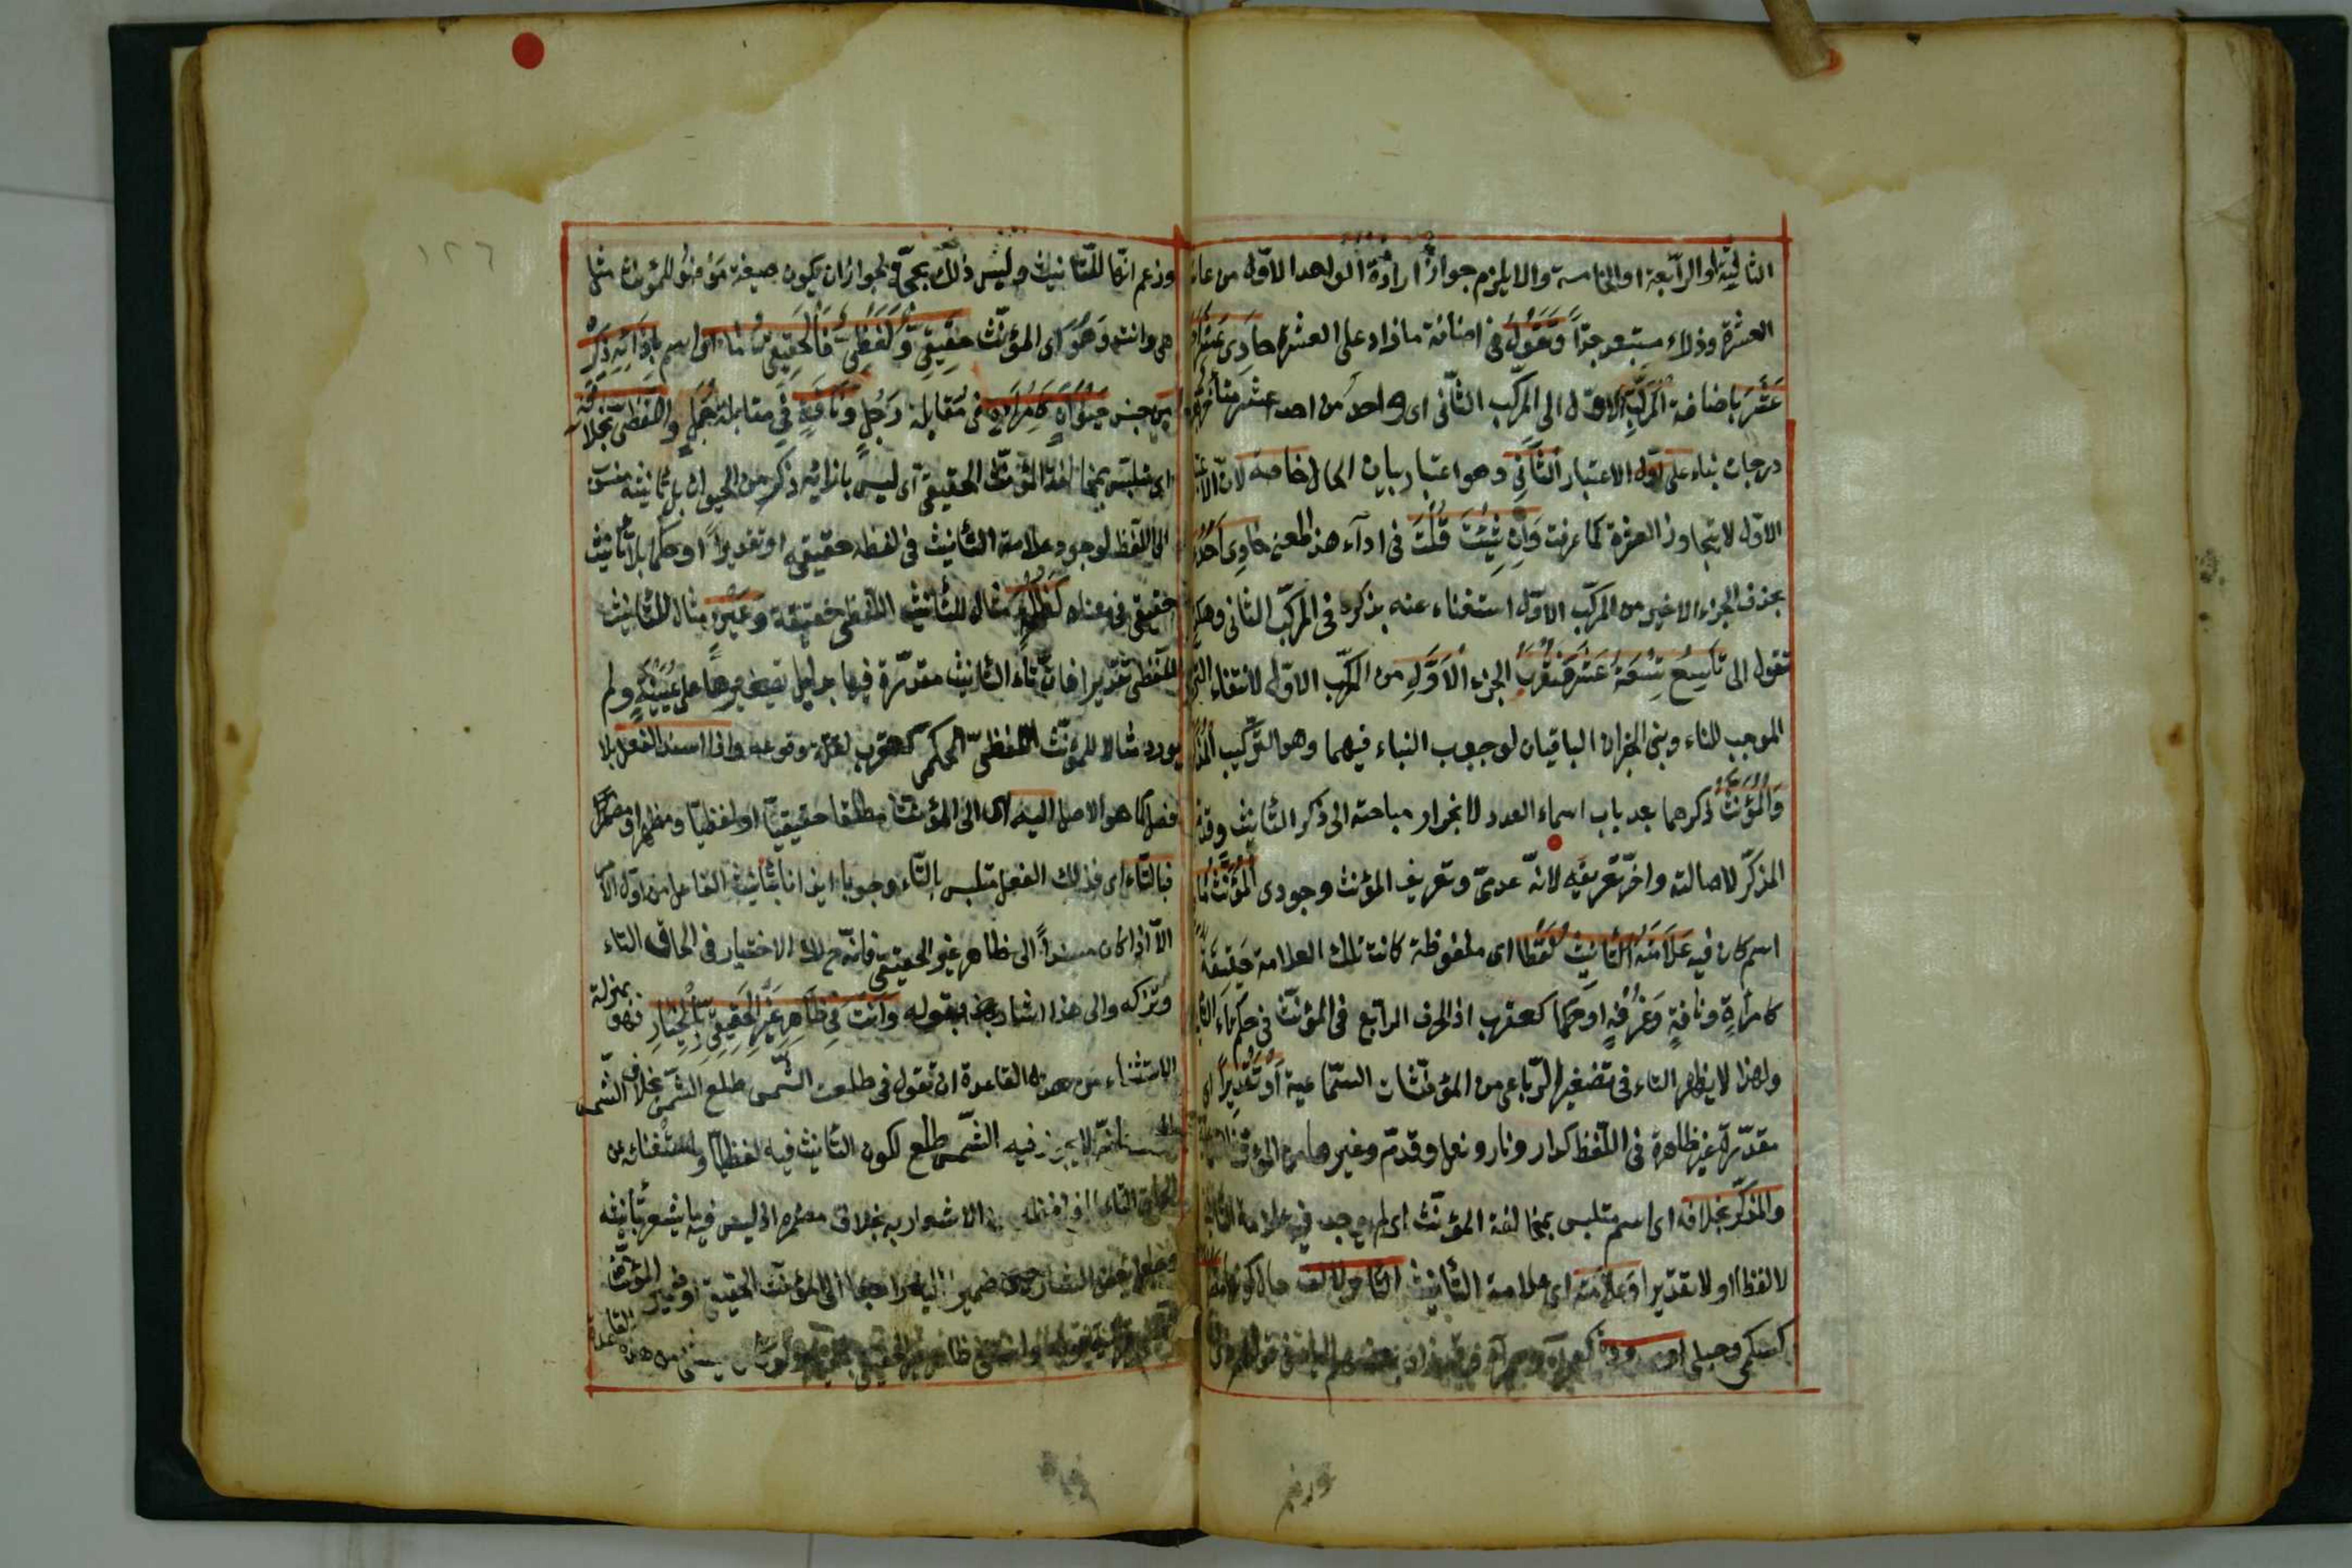 الثالثة او الرّابعة او الخامسة والا يلزم جواز ارادة الواحد الاوّل من عاشر
العشرة وذلك مستبعد جدّاً وَتَقُولُ فى اضافة ما زاد على العشرة حَادِىَ عَشَرَ اَحَدَ
عَشَرَ باضافة المركّب الاوّل الى المركّب الثّانى اى واحد من احد عشر متأخر
درجات بناء على اوّل الاعتبار الثَّانِى وهو اعتبار بيان الحال خاصة لانّ الاعتبار
الاوّل لا يتجاوز العشرة كما عرفت وَاِنْ شِئْتَ قُلْتَ فى اداء هذا المعنى حَادِى اَحَدَ
بحذف الجزء الاخير من المركّب الاوّل استغناء عنه بذكره فى المركّب الثانى وهكذا
تقول الى تَاسِعُ تِسْعَةَ عَشَرَ فَتُعْرِبُ الجزء الْاَوَّلَ من المركّب الاوّل لانتفاء التركيب
الموجب للبناء وبنى الجزان الباقيان لوجوب البناء فيهما وهو التركيب المذكّر
وَالْمُؤَنَّثُ ذكرهما بعد باب اسماء العدد لانجرار مباحثه الى ذكر التأنيث وقدّم
المذكّر لاصالته واخّر تعريفه لانّه عدمىّ وتعريف المؤنث وجودى اَلْمُؤَنَّثُ مَا
اسم كان فيه عَلَامَةُ التَّأْنِيثِ لَفْظًا اى ملفوظة كانت تلك العلامة حَقِيقَةً
كامرأةٍ وناقةٍ وَغُرْفَةٍ او حكما كعقرب اذ الحرف الرابع فى المؤنّث فى حكم تاء التأنيث
ولهذا لا يظهر التاء فى تصغير الرّباعى من المؤنّثات السّماعية اَوْ تَقْدِيرًا اى
مقدّرة غير ظاهرة فى اللّفظ كدار ونار ونعل وقدم وغيرها من المؤنثات
والمذكّر بخلافه اى اسم متلبس بمخالفة المؤنّث اى لم يوجد فيه علامة التأنيث
لا لفظا ولا تقديرا وَعَلَامَته اى علامة التأنيث التاء والالف حال كونها مقصورة
كسلمى وحبلى او ممدودة كصحراء وحمراء
وزعم انّها للتّأنيث وليس ذلك بحجّة لجواز ان يكون صيغة موضوعة للمؤنث مثل
هى وانت وَهُوَ اى المؤنّث حَقِيقِىٌّ وَلَفْظِىٌّ فَالْحَقِيقِىُّ مَا اى اسم بِاِزَائِهِ ذَكَرٌ
مِن جنس حَيَوَانٍ كَامْرَأَةٍ فى مقابلة رَجُلٍ وَنَاقَةٍ فى مقابلة جَمَلٍ وَاللَّفْظِىُّ بِخِلَافِهِ
اى متلبّس بمخالفة المؤنّث الحقيقى اى ليس بازائه ذكر من الحيوان بل تأنيثه منسوب
الى اللّفظ لوجود علامة التأنيث فى لفظه حقيقة او تقديراً او حكما بلا تأنيث
حقيقى فى معناه كَظُلْمَةٍ مثال للتّأنيث اللّفظى حقيقة وَعَيْنٍ مثال للتأنيث
اللّفظى تقديرا فانّ تاء التأنيث مقدّرة فيها بدليل تصغيرها على عُيَيْنَةٍ ولم
يورد مثالا للمؤنّث اللفظىّ الحكمى كعقرب لقلّة وقوعه واذا اسند الفعل بلا
فصل كما هو الاصل اليه اى الى المؤنّث مطلقا حقيقيّا او لفظيّا ومظهرا ومضمرا
فبالتّاء اى فذلك الفعل متلبس بالتّاء وجوبا ايذانا بتأنيث الفاعل من اوّل الامر
الّا اذا كان مسنداً الى ظاهر غير الحقيقى فانّه ح لك الاختيار فى الحاق التاء
وتركه والى هذا اشار بقوله وَاَنْتَ فِى ظَاهِرِ غَيْرِ الْحَقِيقِىِّ بِالْخِيَارِ فهو بمنزلة
الاستثناء من هذه القاعدة ان تقول فى طلعت الشّمس طلع الشّمس بخلاف الشمس
فانّه لا يجوز فيه الشّمس طلع لكون التأنيث فيه لفظيّا واستغنائه عن
الحاق التاء الاشعار به بخلاف مضمره اذ ليس فيه ما يشعر بتأنيثه
وجعل بعض الشارحين ضمير اليه راجعا الى المؤنّث الحقيقى او ضمير المؤنّث
ظاهر غير الحقيقى من هذه القاعدة
١٢٦
وزعم